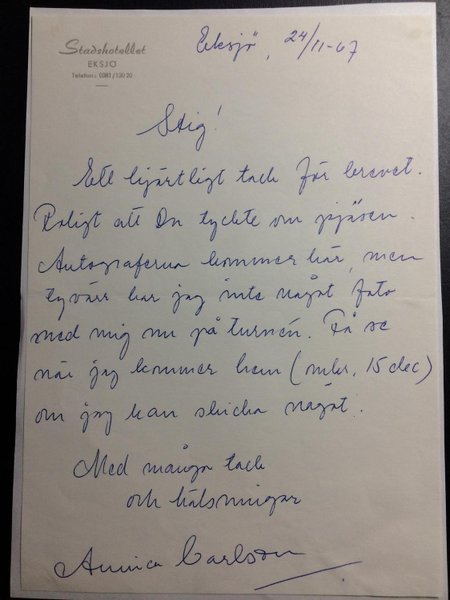 Stadshotellet
EKSJÖ
Telefon: 0381/130 20
Eksjö, 24/11-67
Stig!
Ett hjärtligt tack för brevet.
Roligt att Du tyckte om pjäsen.
Autograferna kommer här, men
tyvärr har jag inte något foto
med mig nu på turnén. Få se
när jag kommer hem (mkr. 15 dec)
om jag kan skicka något.
Med många tack
och hälsningar
Annica Carlsson